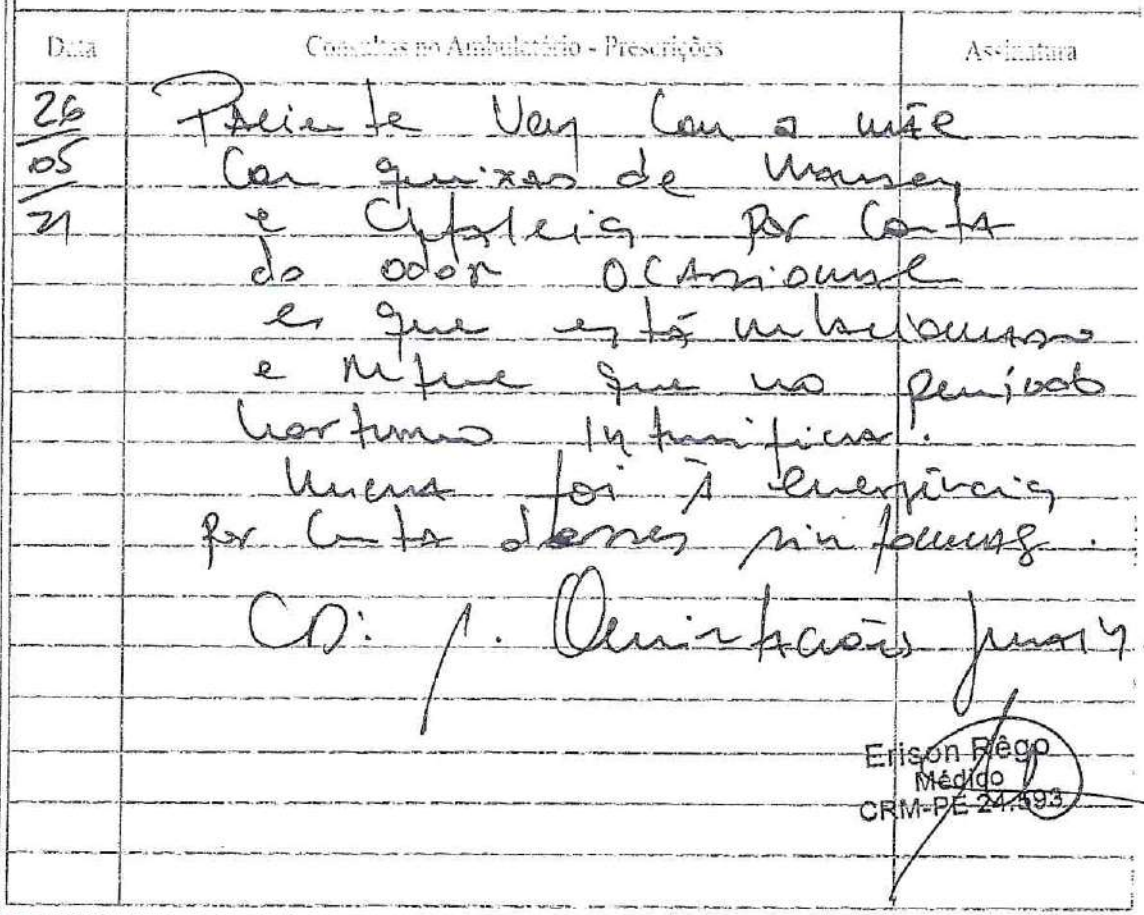 Data Consultas no Ambulatório - Prescrições Assinatura
26 Paciente Vem Com a mãe
05 Com queixas de Nausea
21 e Cefaleia Por Conta
do odor ocasional
que está
e refere que no período
noturno intensifica.
Nunca foi à emergência
Por Conta desses sintomas.
CD: 1. Orientações gerais
Erison Rêgo
Médico
CRM-PE 24.593